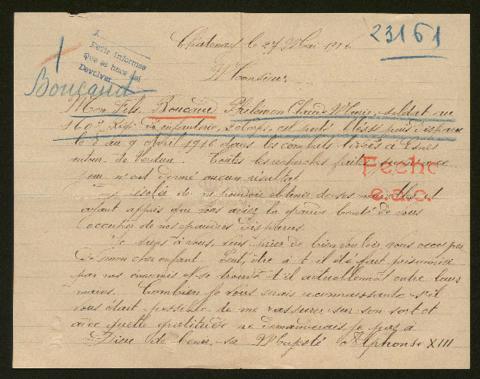 23161
Pedir informes
que se hace
Devolver
Boucaud
Châtenay le 27 Mai 1916
Monsieur
Mon fils, Boucaud Philémon Claude Marie, soldat au
160e Régt d'infanterie, est porté blessé puis disparu
le 8 au 9 avril 1916 dans les combats livrés à
de Verdun. Toutes les recherches faites
jour m'ont donné aucun résultat
Fecho
e.d.c.
de ne pouvoir obtenir de ses nouvelles et
ayant appris que vous aviez la grande bonté de vous
occuper de nos pauvres disparus
Je viens à vous, vous prier de bien vouloir vous occuper
de mon cher enfant. Peut être a t il été fait prisonnier
par nos ennemis et se trouve t il actuellement entre leurs
mains. Combien je vous serais reconnaissante s'il
vous était possible de me rassurer sur son sort et
avec quelle gratitude ne demanderais je pas à
Dieu de Sa Majesté Alphonse XIII